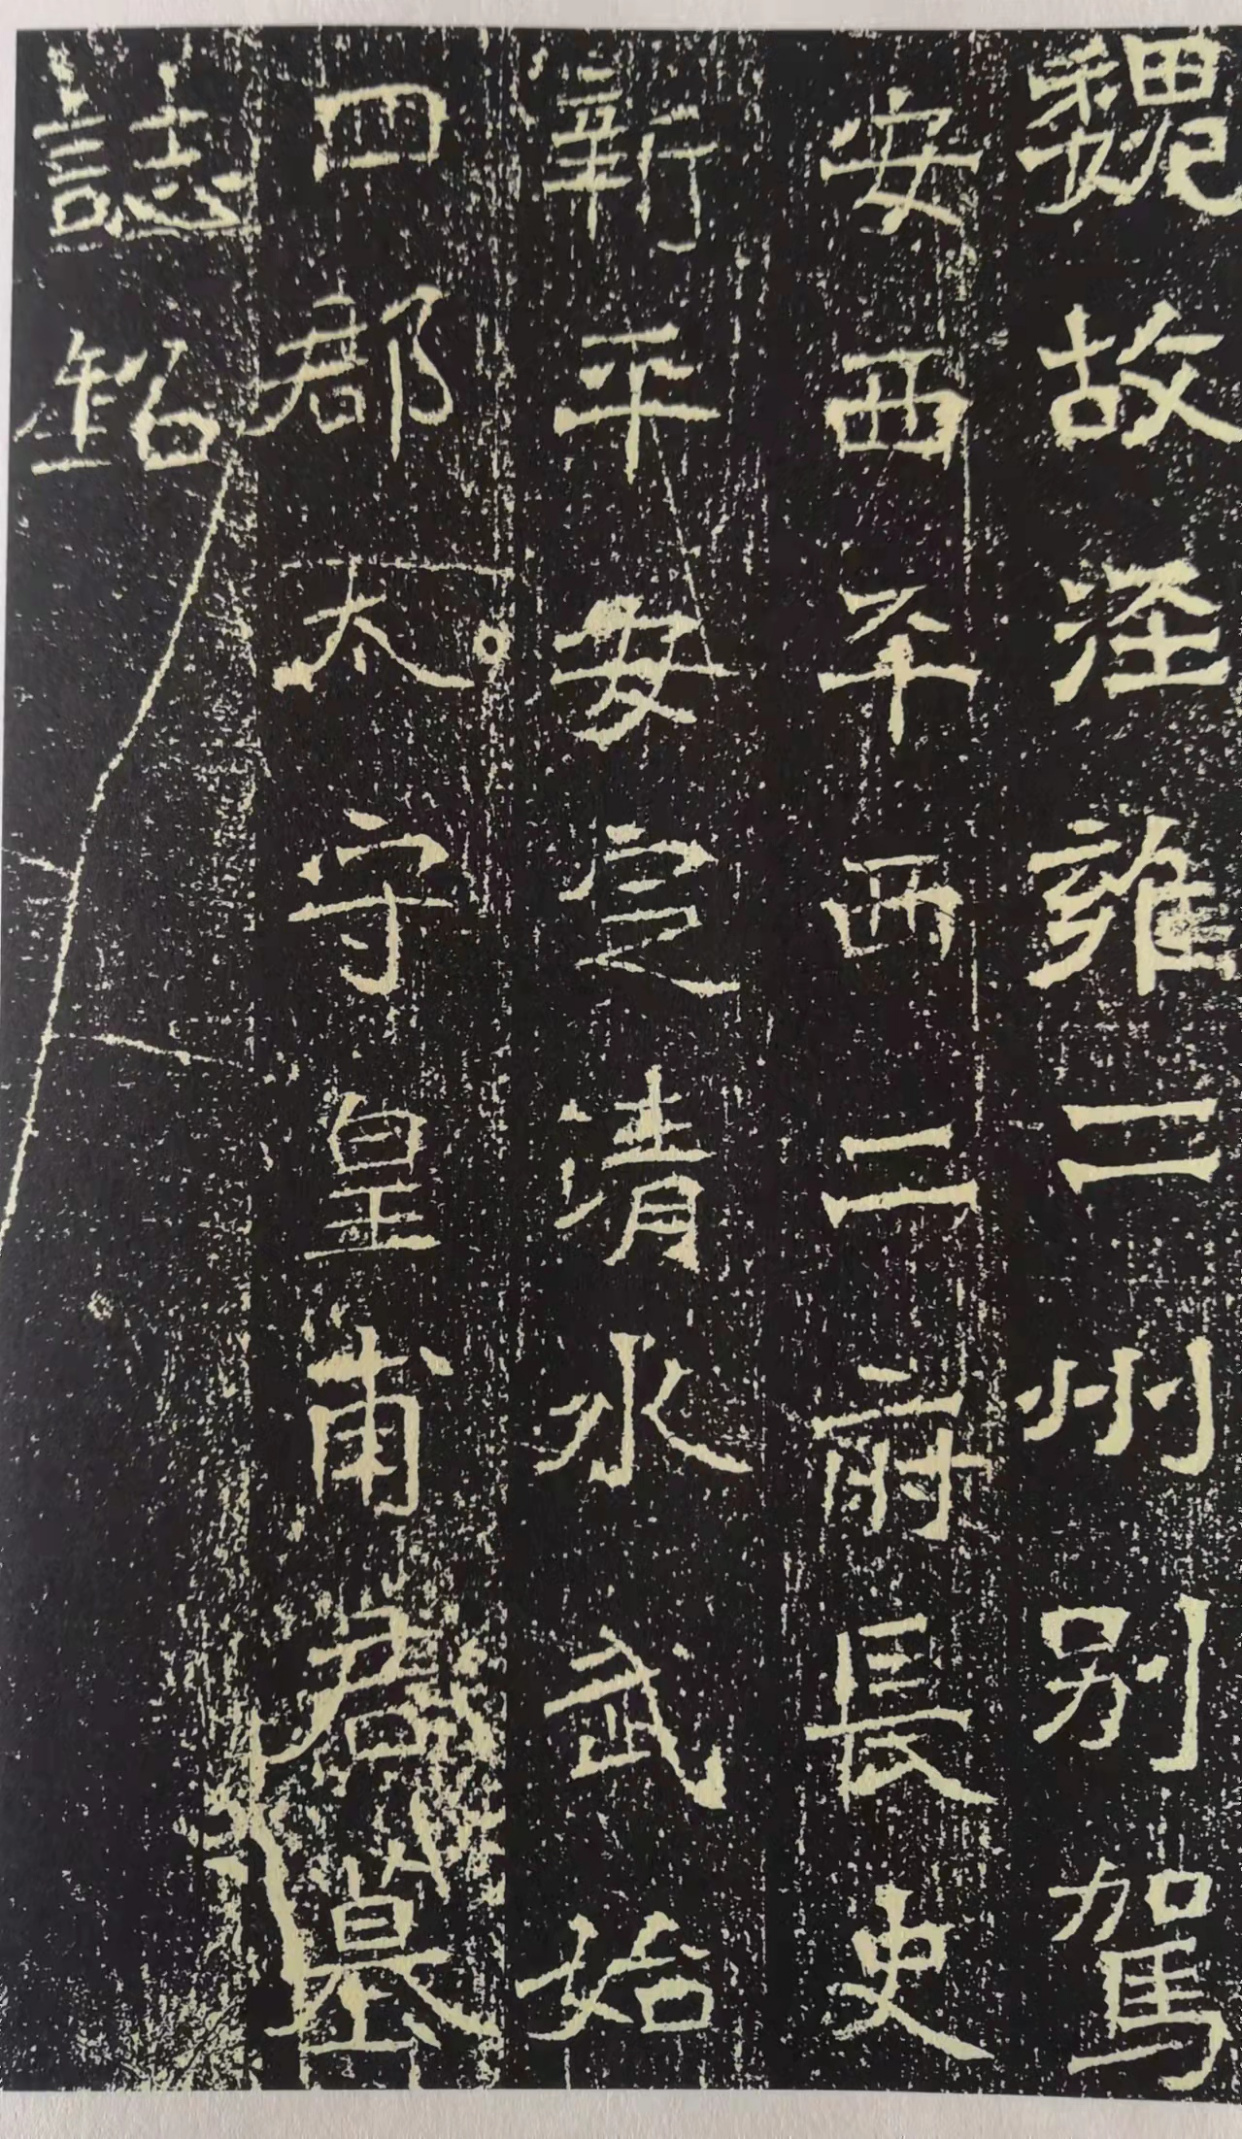 魏故涇雍二州别駕
安西平西二府長史
新平安定清水武始
四郡太守皇甫君墓
誌銘